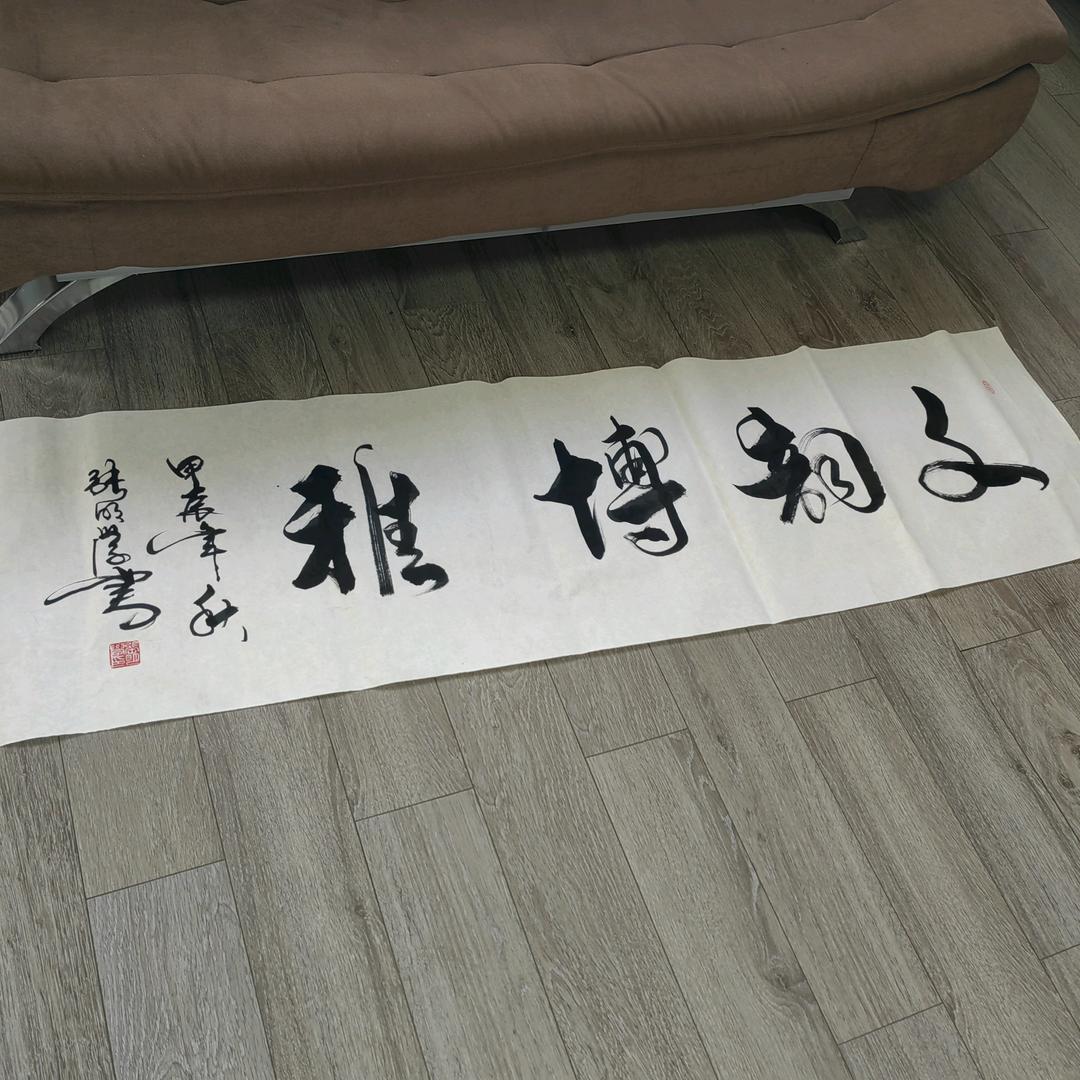 文翰博雅
甲辰年秋
张明学書